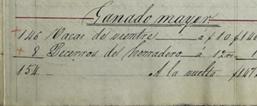 Ganado mayor
146 Vacas de vientre á $10
8 Becerros de herradero á 12
154 A la vuelta $147